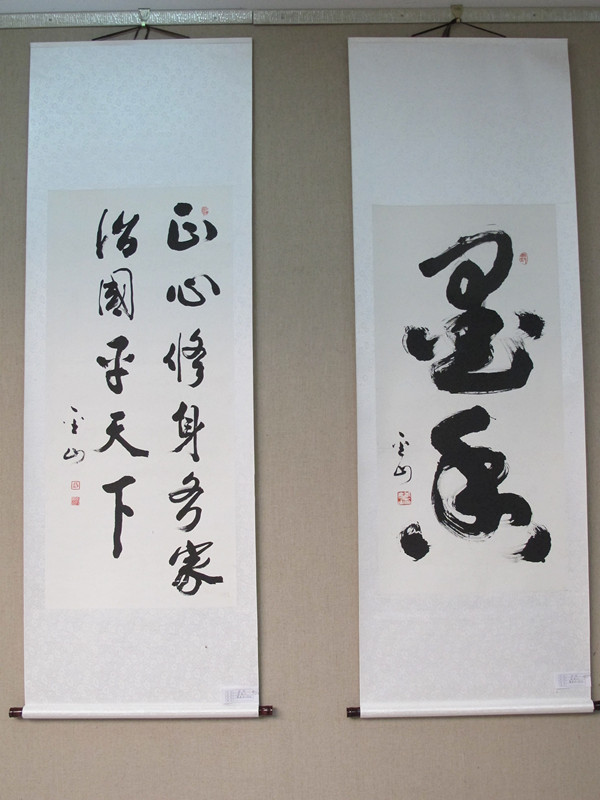 正心修身齐家
治國平天下
雲山
墨香
雲山